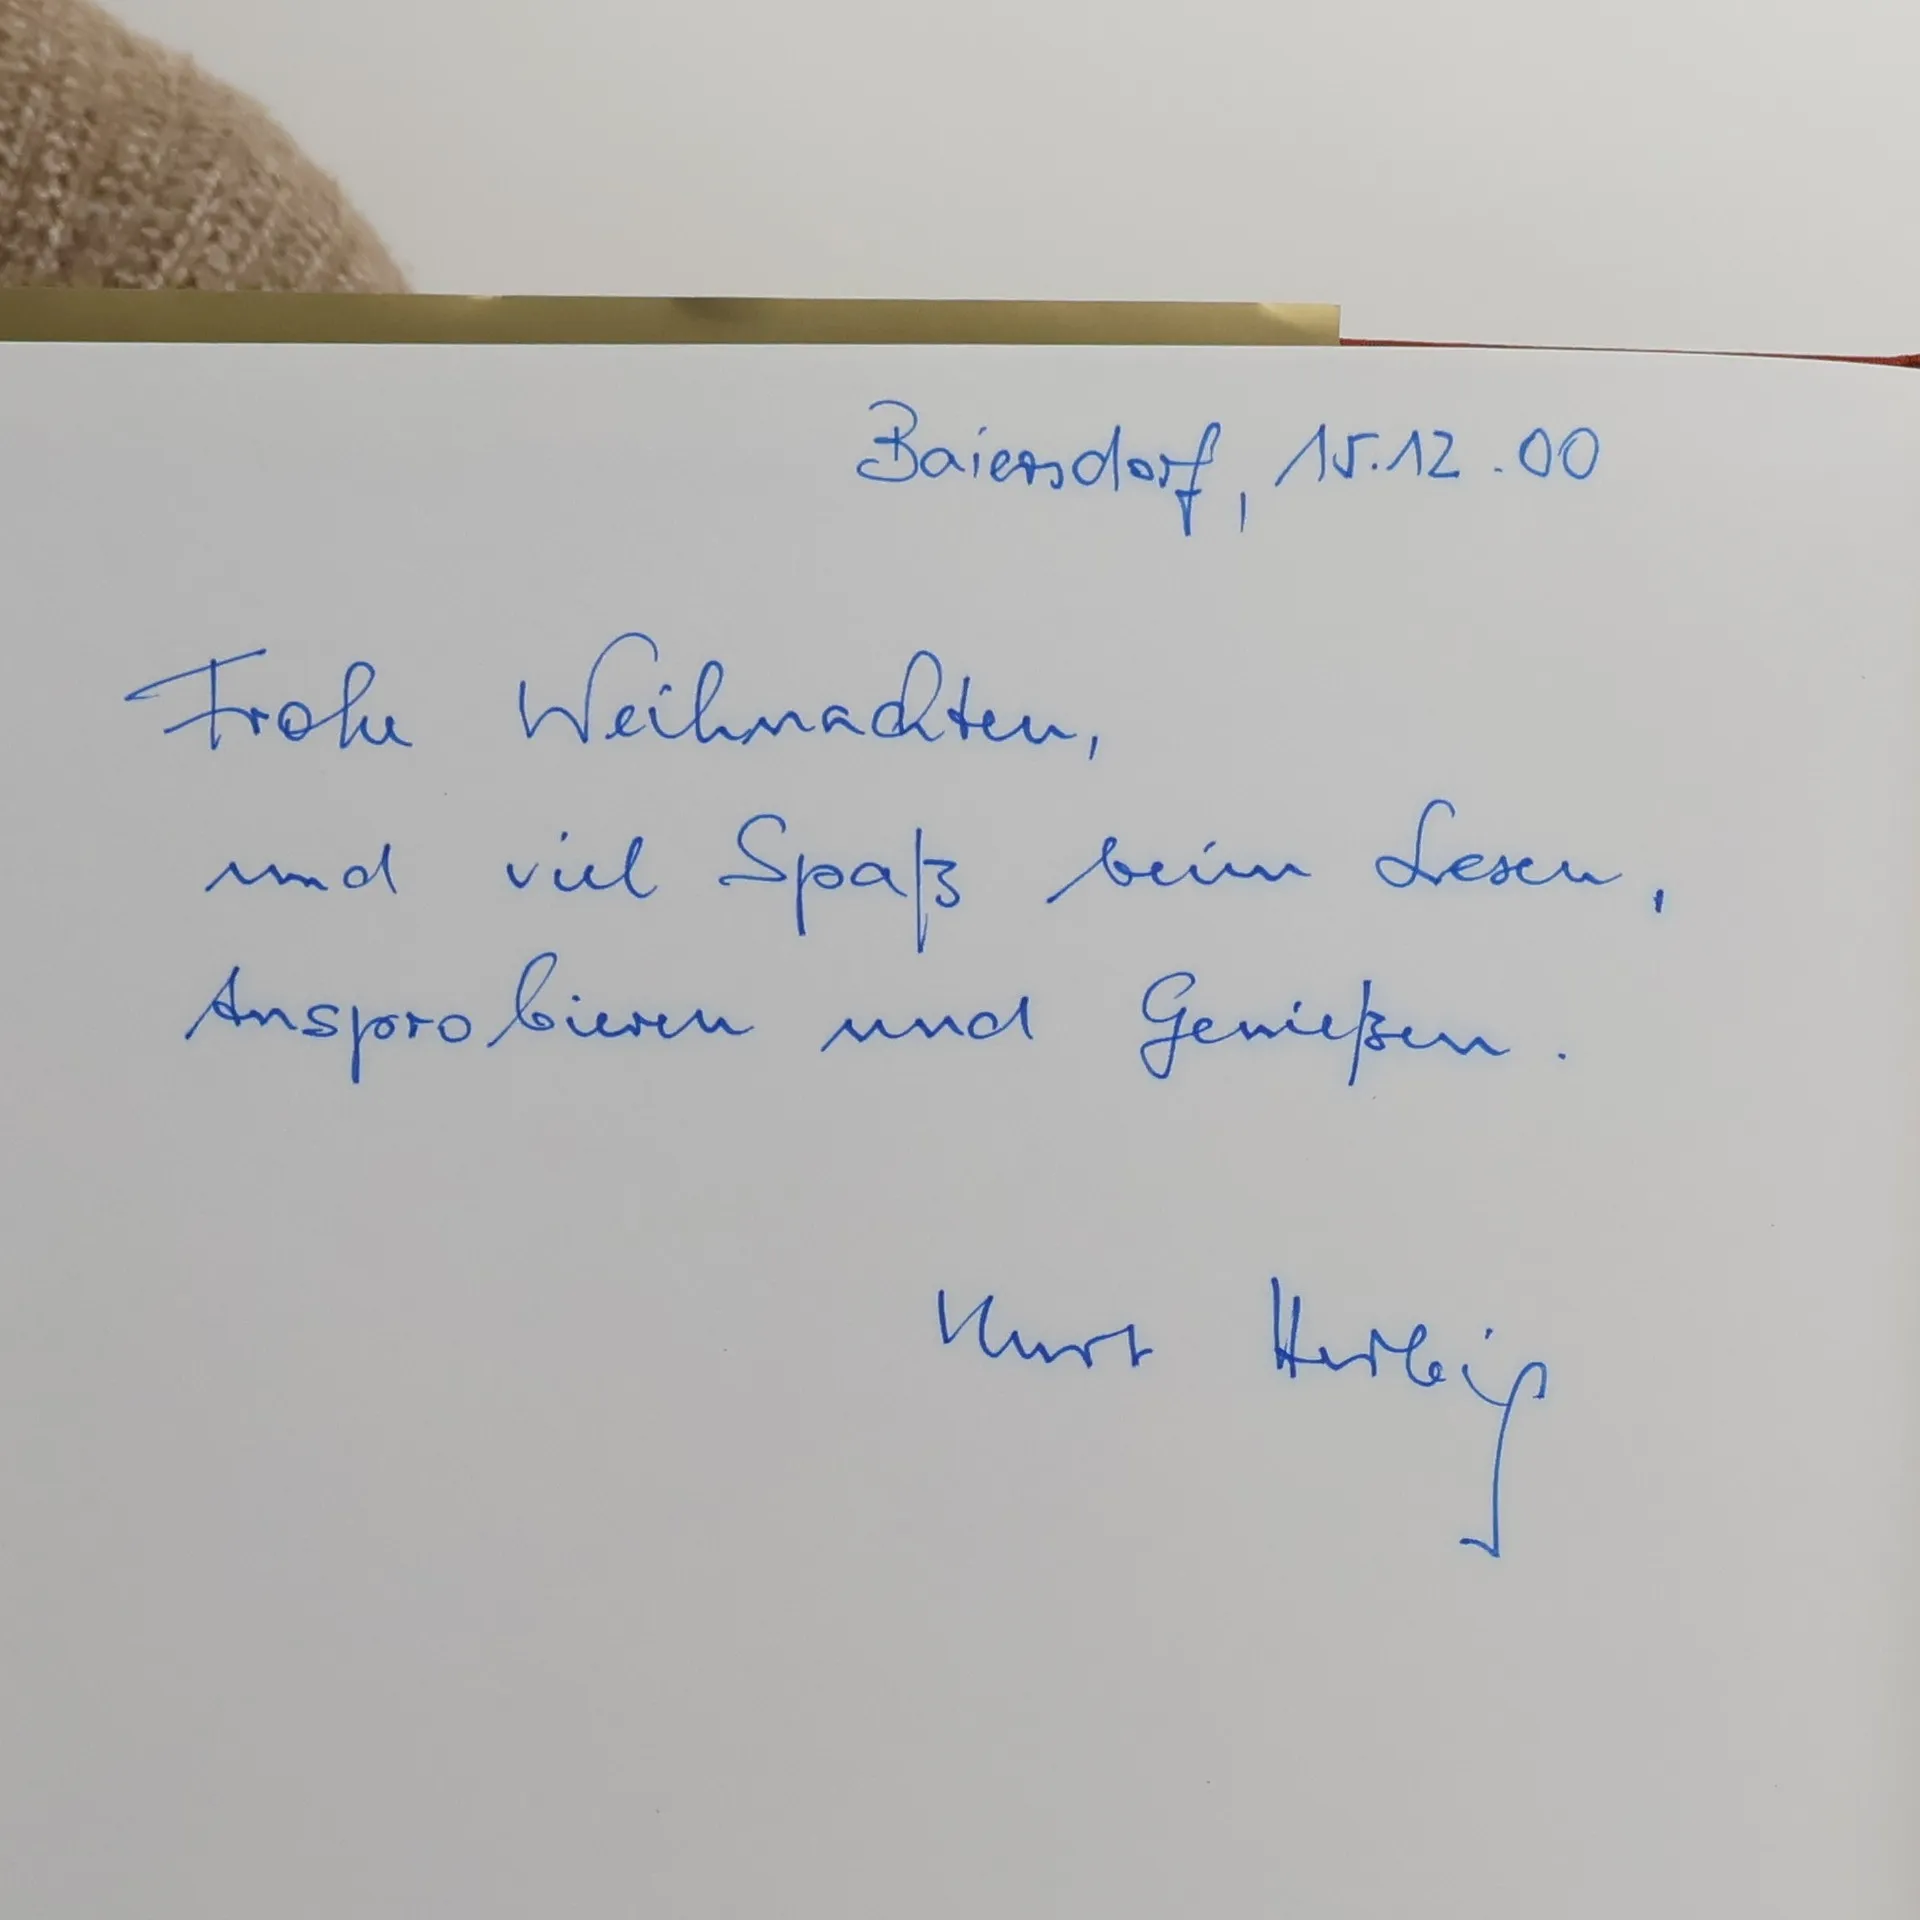 Baiersdorf, 15.12.00
Frohe Weihnachten,
und viel Spaß beim Lesen,
Ausprobieren und Genießen.
Kurt Helbig